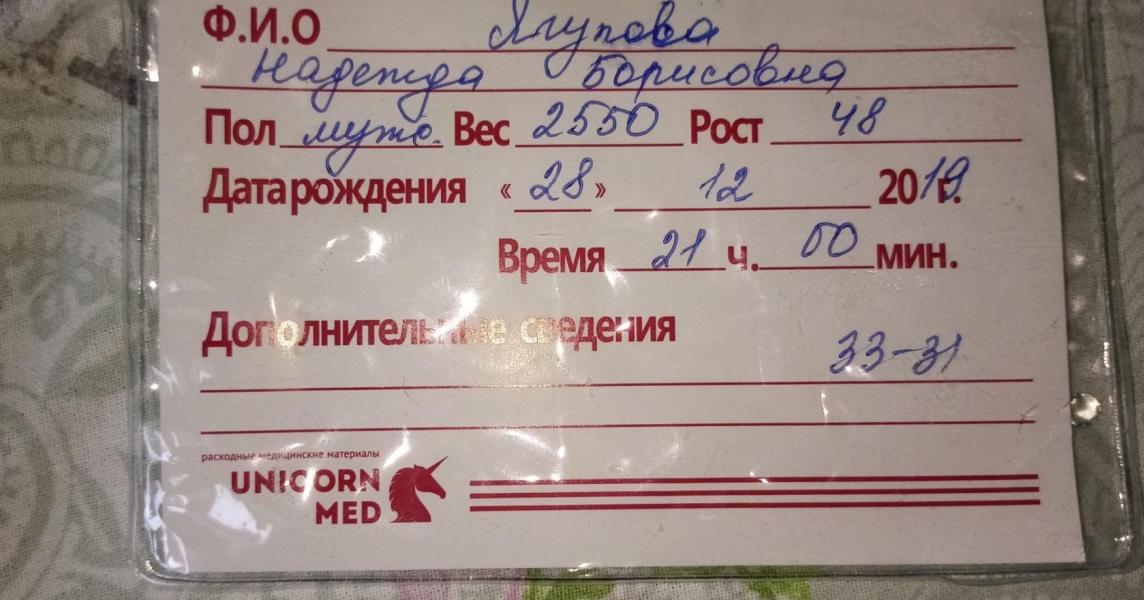 Ф.И.О Ягупова
Надежда Борисовна
Пол муж. Вес 2550 Рост 48
Дата рождения « 28 » 12 2019 г.
Время 21 ч. 00 мин.
Дополнительные сведения
33-31
расходные медицинские материалы
UNICORN
MED